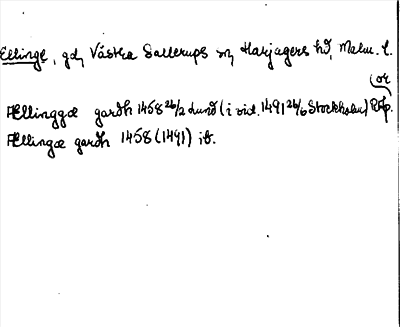 Ellinge, gd, Västra Sallerups sn, Harjagers hd, Malm. l.
or
Ællinggæ gardh 1458 26/2 Lund (i vid. 1491 26/6 Stockholm) RAp.
Ællingæ gardh 1458 (1491) ib.